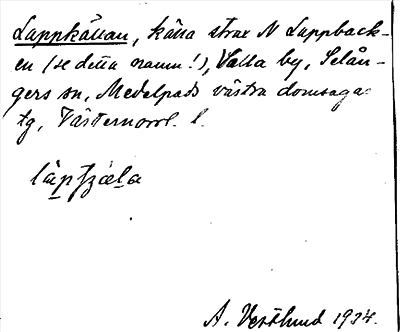 Lappkällan, källa strax N Lappback-
en (se detta namn!), Valla by, Selån-
gers sn, Medelpads västra domsaga
tg, Västernorrl. l.
A. Vestlund 1934.